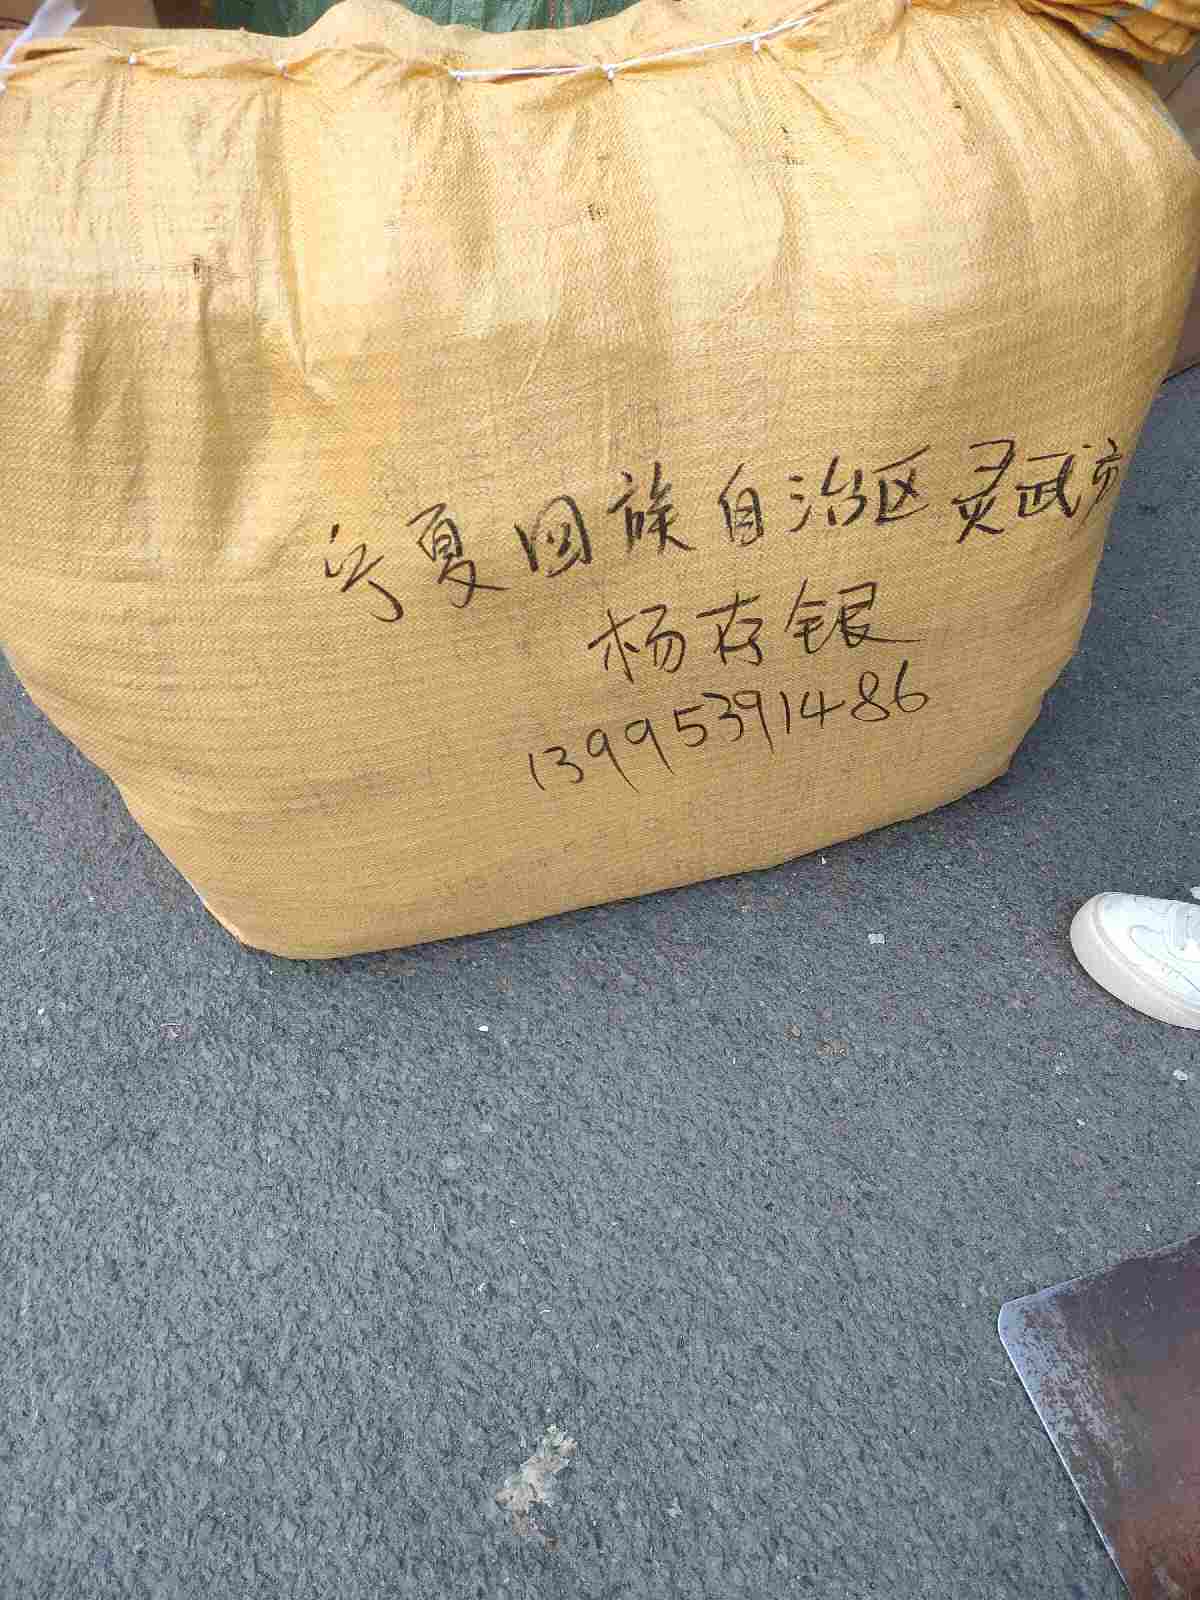 宁夏回族自治区灵武市
杨存银
13995391486